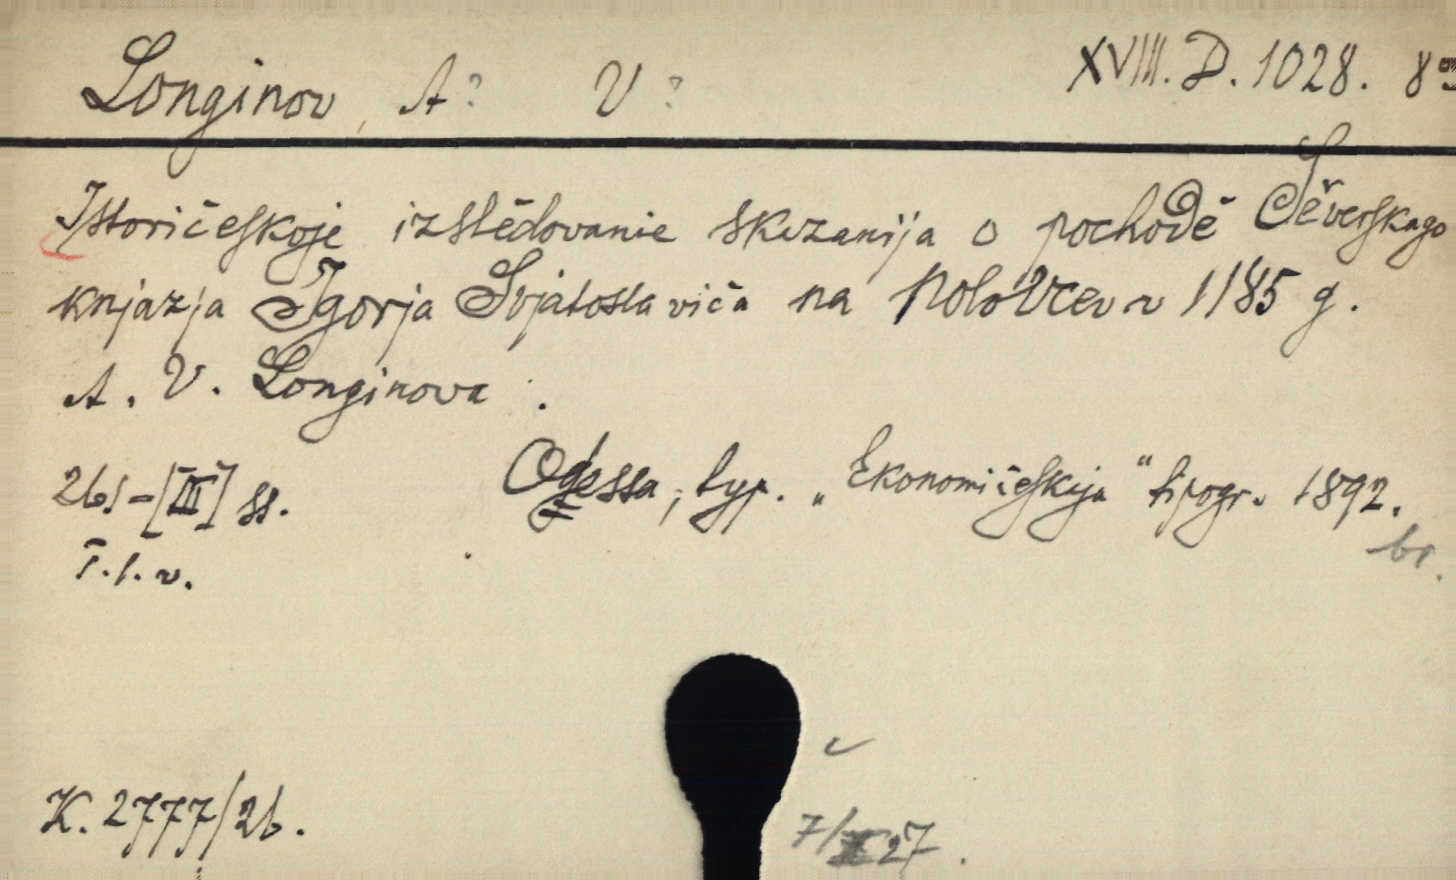 Longinov, A? V? XVIII. D. 1028. 8°
Istoričeskoje izslědovanie skazanija o pochodě Sěverskago
knjazja Igorja Svjatoslaviča na Polovcev v 1185 g.
A. V. Longinova.
261-[III] ss. Odessa, typ. „Ekonomičeskija" tipogr. 1892.
br.
T. l. v.
K. 2777/26.
27.